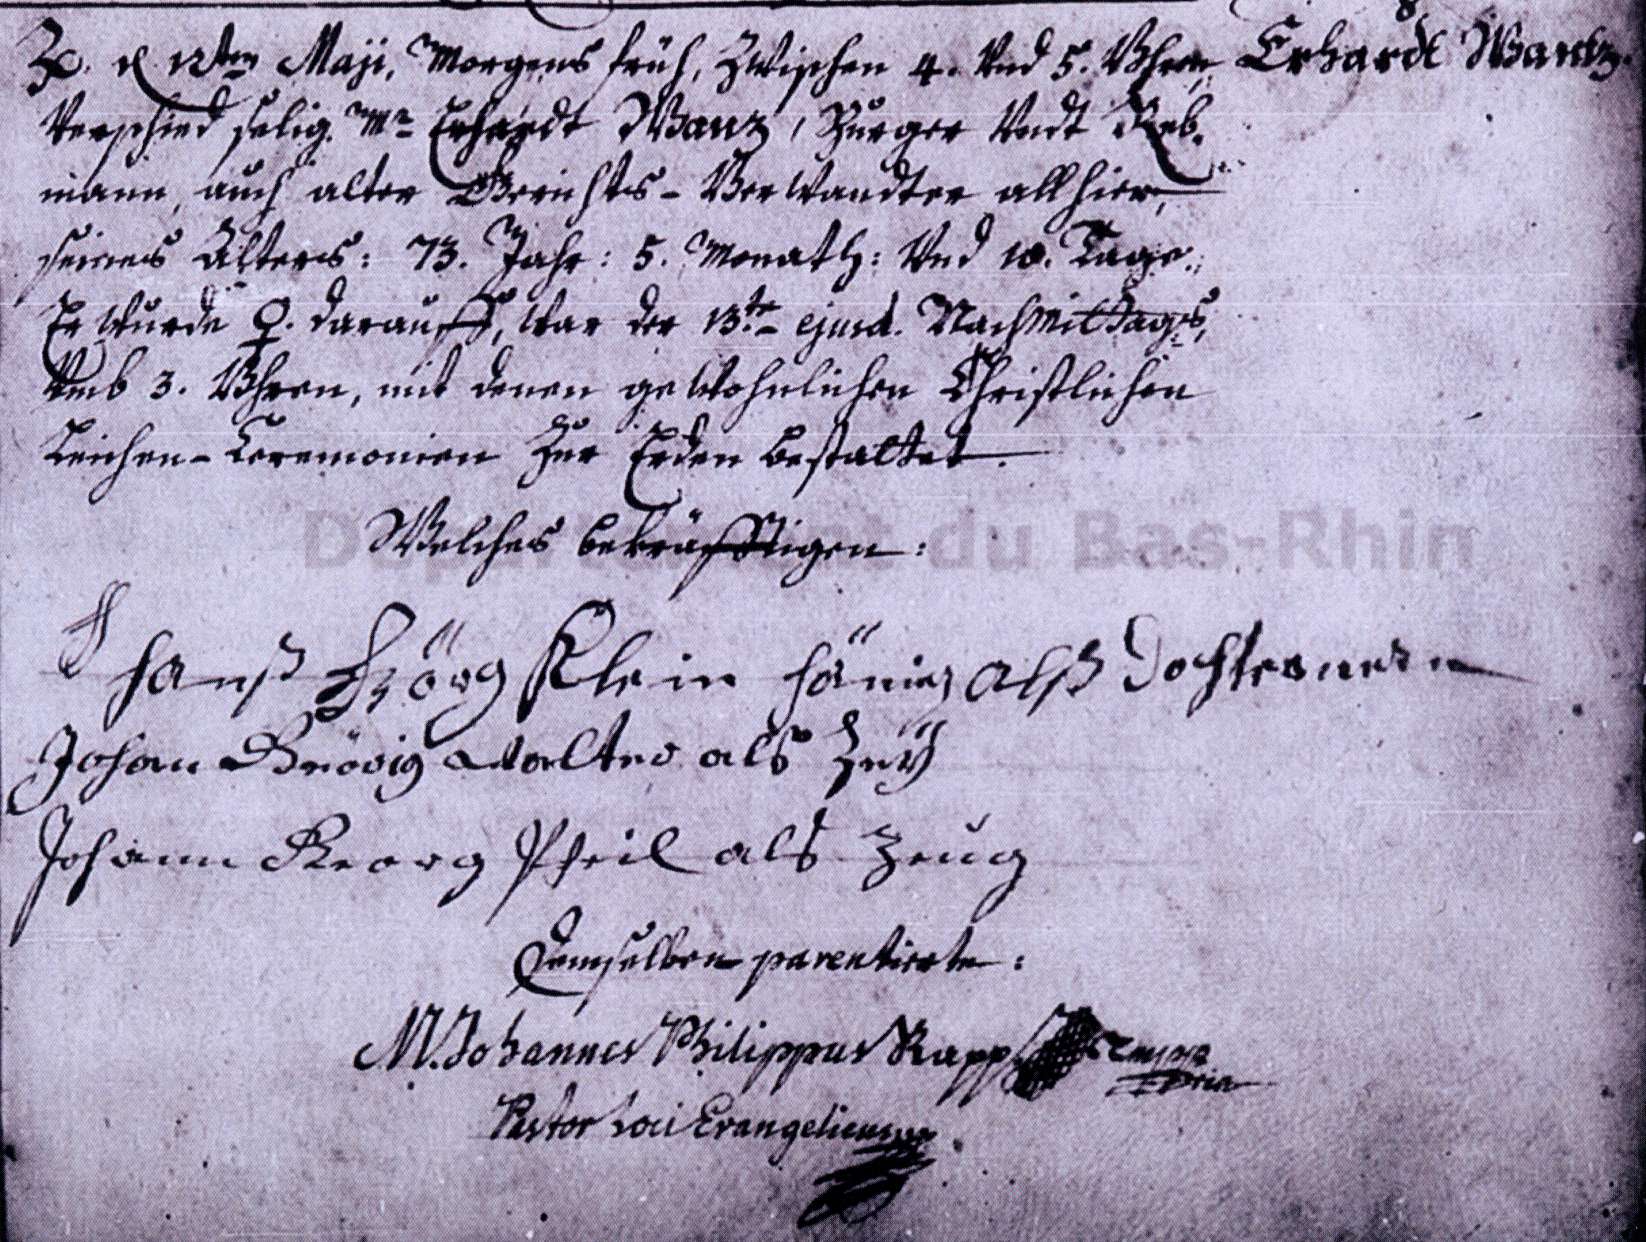 ♃. d. 12ten Maji, Morgens früh, Zwischen 4. Vnd 5. Vhren, Erhardt Wantz.
Verschied selig. Mr Erhardt Wanz, Burger Vndt Reb-
mann, auch alter Gerichts-Verwandter allhier,
seines Alters: 73. Jahr: 5. Monath: Vnd 10. Tage.
Er Wurde ♀. darauff, War der 13.te ejusd. Nachmittags,
Vmb 3. Vhren, mit denen gewohnlichen Christlichen
Leichen-Ceremonien Zur Erden bestattet.
Welches bekräfftigen:
Département du Bas-Rhin
hanß Jörg Klein alß
Johan Geörig Walter als Zeüg
Johann Georg Pfeil als Zeug
Demselben parentirte:
M. Johannes Philippus Rapp
Pastor Loci Evangelicus